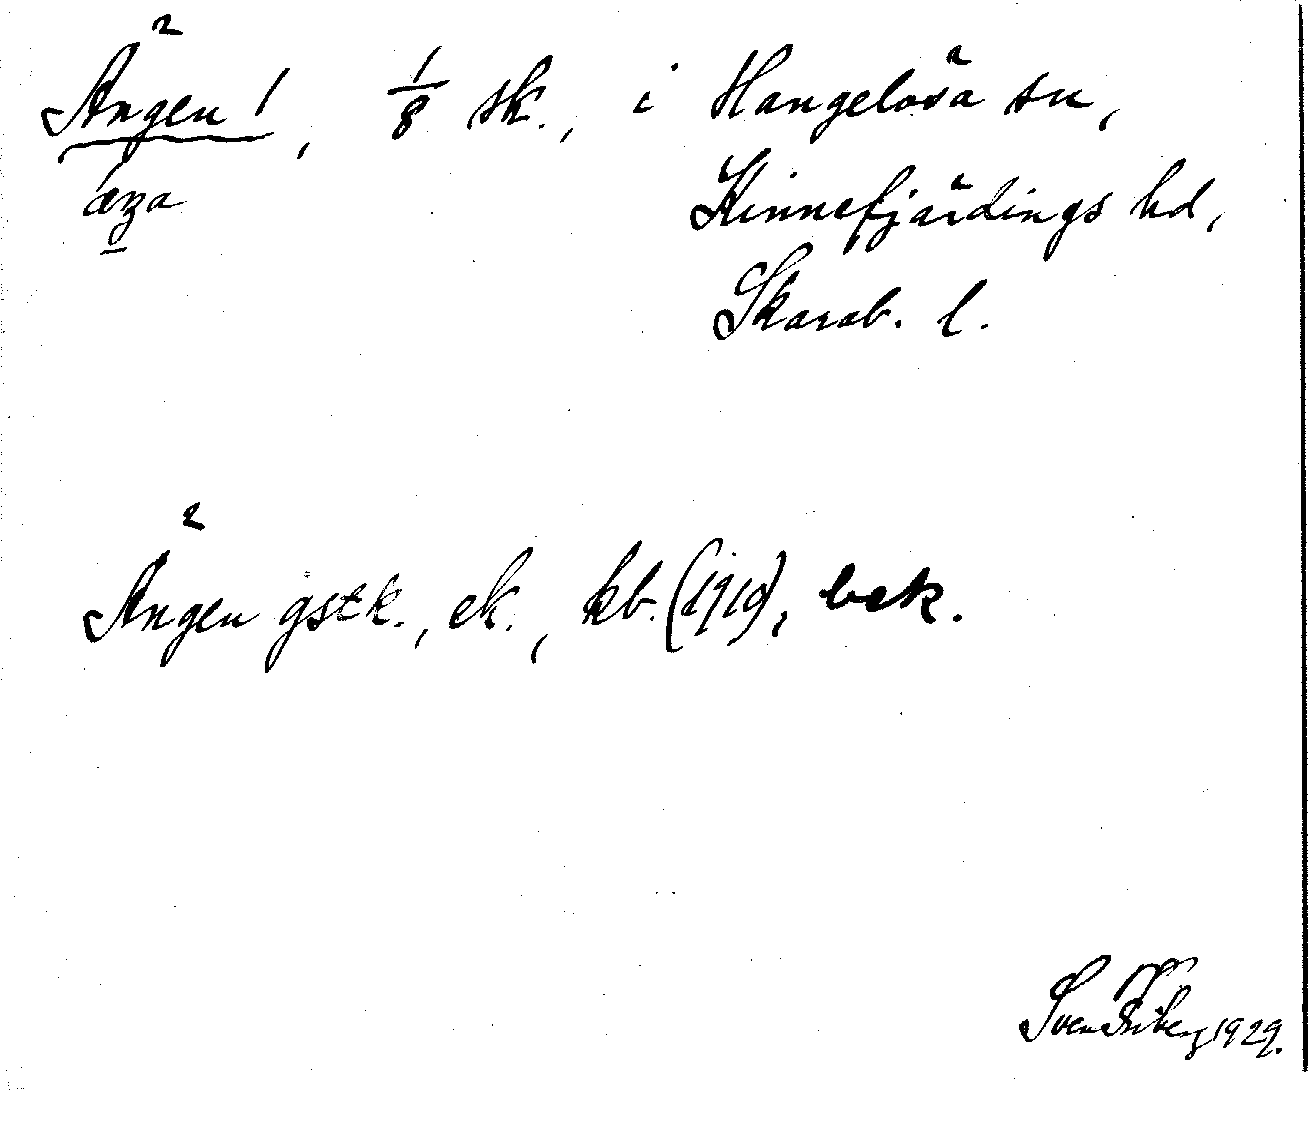 Ängen 1, 1/8 sk., i Hangelösa sn,
áŋa Kinnefjärdings hd,
Skarab. l.
Ängen gstk., ek., kb. (1919), bek.
Sven Friberg 1929.